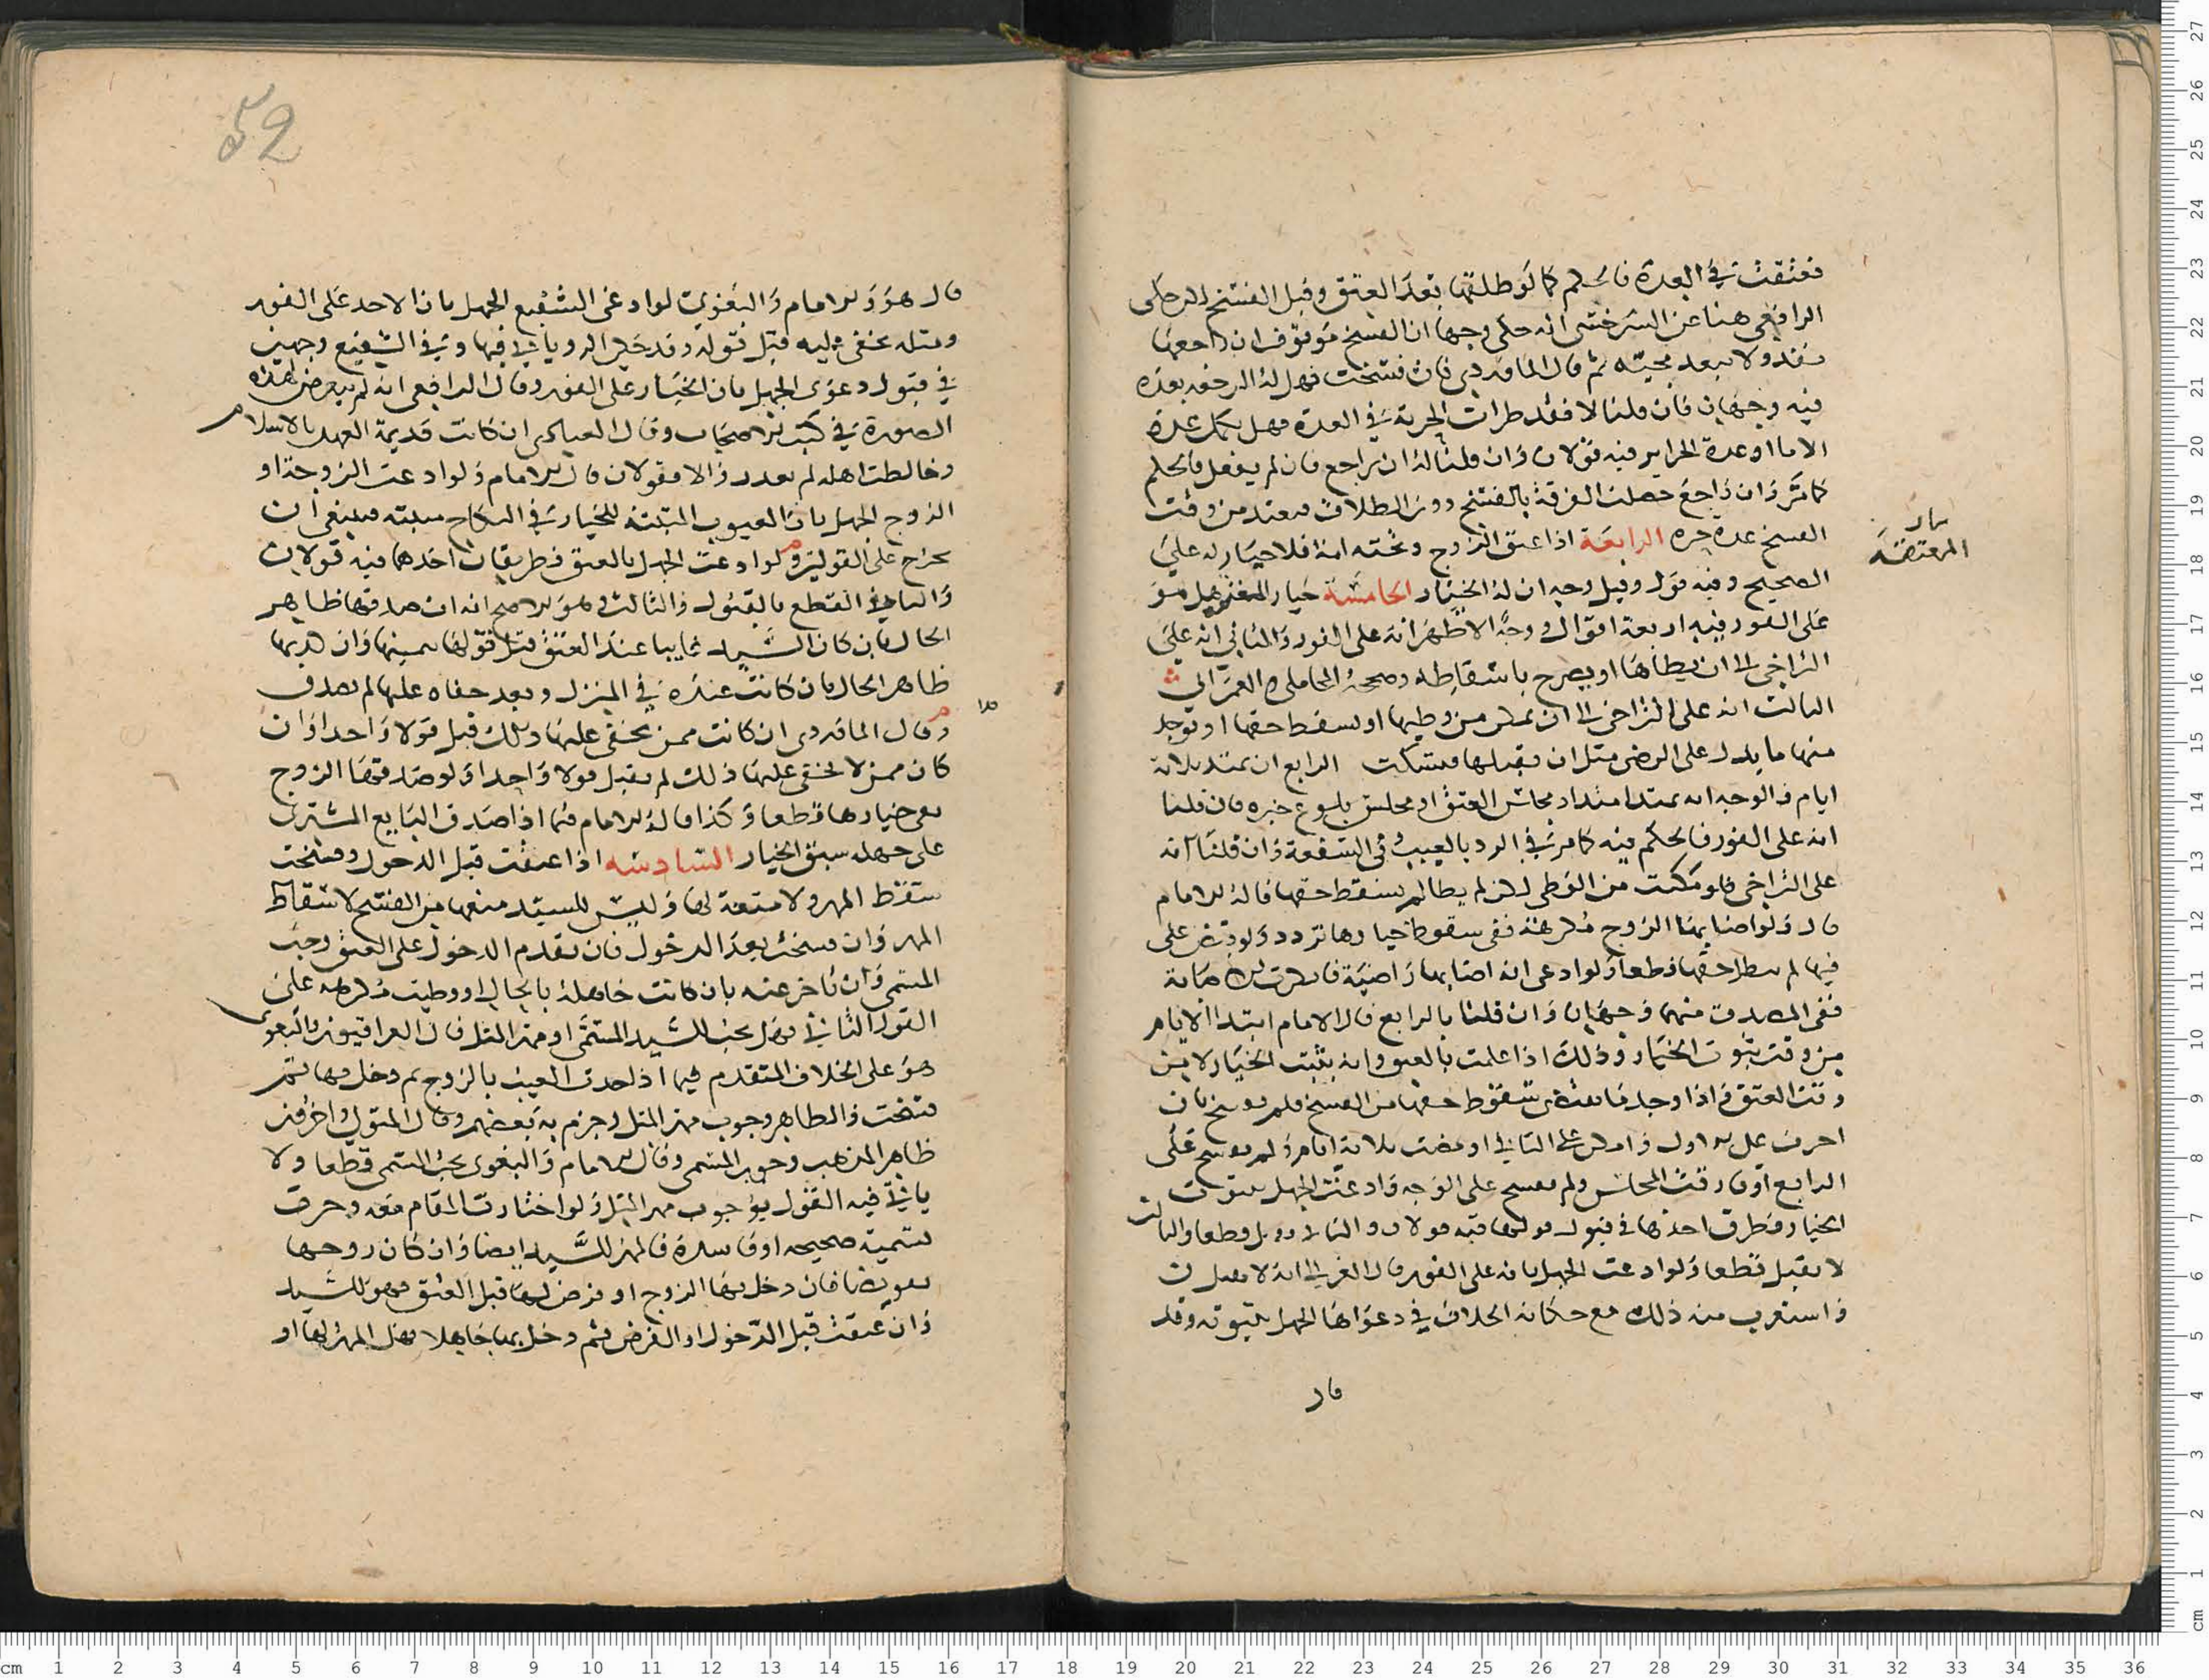 فعتقت في العدة فالحكم كما لو طلقها بعد العتق وقبل الفسخ لكن حكى
الرافعي هنا عن السرخسي انه حكى وجها ان الفسخ موقوف ان راجعها
نفذ ولا يبعد مجيئه ثم قال الماوردي فان فسخت فهل له الرجعة بعده
فيه وجهان فان قلنا لا فقد طرات الحرية في العدة فهل تكمل عدة
الاما او عدة الحراير فيه قولان وان قلنا له ان يراجع فان لم يفعل فالحكم
كما مر وان راجع حصلت الفرقة بالفسخ دون الطلاق فتعتد من وقت
الفسخ عدة حره الرابعة اذا عتق الزوج وتحته امة فلا خيار له على
الصحيح وفيه قول وقيل وجه ان له الخيار الخامسة خيار العتق هل هو
على الفور فيه اربعة اقوال ووجه الاظهر انه على الفور والثاني انه على
التراخي الى ان يطاها او يصرح باسقاطه وصححه المحاملي والغزالي
الثالث انه على التراخي الى ان تمكن من وطيها او تسقط حقها او يوجد
منها ما يدل على الرضى مثل ان يقبلها فتسكت الرابع ان يمتد ثلاثة
ايام والوجه انه يمتد امتداد مجلس العتق او مجلس بلوغ خبره فان قلنا
انه على الفور فالحكم فيه كما مر في الرد بالعيب وفي الشفعة وان قلنا انه
على التراخي فلو مكنت من الوطي لكن لم يطا لم يسقط حقها قاله الامام
قال ولو اصابها الزوج مكرهة ففي سقوط خيارها تردد ولو قبض على
فيها لم يبطل حقها قطعا ولو ادعى انه اصابها راضية فانكرت الاصابة
ففي المصدق منهما وجهان وان قلنا بالرابع قال الامام ابتدا الايام
من وقت ثبوت الخيار وذلك اذا علمت بالعتق وانه يثبت الخيار لا من
وقت العتق فاذا وجد ما يقتضي سقوط حقها من الفسخ فلم تفسخ بان
اخرت على الاول وامكن على الثاني او مضت ثلاثة ايام ولم تفسخ على
الرابع او فارقت المجلس ولم تفسخ على الوجه وادعت الجهل بثبوت
الخيار فطرق احدها في قبول قولها فيه قولان والثاني يقبل قطعا والثالث
لا يقبل قطعا ولو ادعت الجهل بانه على الفور قال الغزالي انه لا يقبل
واستغرب منه ذلك مع حكاية الخلاف في دعواها الجهل بثبوته وقد
قال
قال هو والامام والبغوي لو ادعى الشفيع الجهل بان الاخذ على الفور
ومثله يخفى عليه قبل قوله وقد حكى الروياني فيها وفي الشفيع وجهين
في قبول دعوى الجهل بان الخيار على الفور وقال الرافعي انه لم يتعرض لهذه
الصورة في كتب الاصحاب وقال العبادي ان كانت قديمة العهد بالاسلام
وخالطت اهله لم تعذر والا فقولان قال الامام ولو ادعت الزوجة او
الزوج الجهل بان العيوب المثبتة للخيار في النكاح مثبتة فينبغي ان
يخرج على القولين ولو ادعت الجهل بالعتق فطريقان احدهما فيه قولان
والثاني القطع بالقبول والثالث وهو الاصح انه ان صدقها ظاهر
الحال بان كان السيد غايبا عند العتق قبل قولها بيمينها وان كذبها
ظاهر الحال بان كانت عنده في المنزل وبعد خفاه عليها لم تصدق
وقال الماوردي ان كانت ممن يخفى عليها ذلك قبل قولا واحدا وان
كان ممن لا يخفى عليها ذلك لم يقبل قولا واحدا ولو صدقها الزوج
بقي خيارها قطعا وكذا قاله الامام فيما اذا صدق البايع المشتري
على جهله سبق الخيار السادسة اذا عتقت قبل الدخول وفسخت
سقط المهر ولا متعة لها وليس للسيد منعها من الفسخ لاسقاط
المهر وان فسخت بعد الدخول فان تقدم الدخول على العتق وجب
المسمى وان تاخر عنه بان كانت جاهلة بالحال او وطيت مكرهة على
القول الثاني فهل يجب للسيد المسمى او مهر المثل قال العراقيون والبغوي
هو على الخلاف المتقدم فيما اذا حدث العيب بالزوج ثم دخل بها ثم
فسخت والظاهر وجوب مهر المثل وجزم به بعضهم وقال المتولي واخرون
ظاهر المذهب وجوب المسمى وقال الامام والبغوي يجب المسمى قطعا ولا
ياتي فيه القول بوجوب مهر المثل ولو اختارت المقام معه وجرت
تسمية صحيحه او فاسدة فالمهر للسيد ايضا وان كان زوجها
تفويضا فان دخل بها الزوج او فرض لها قبل العتق فهو للسيد
وان عتقت قبل الدخول او الفرض ثم دخل بها جاهلا فهل المهر لها او